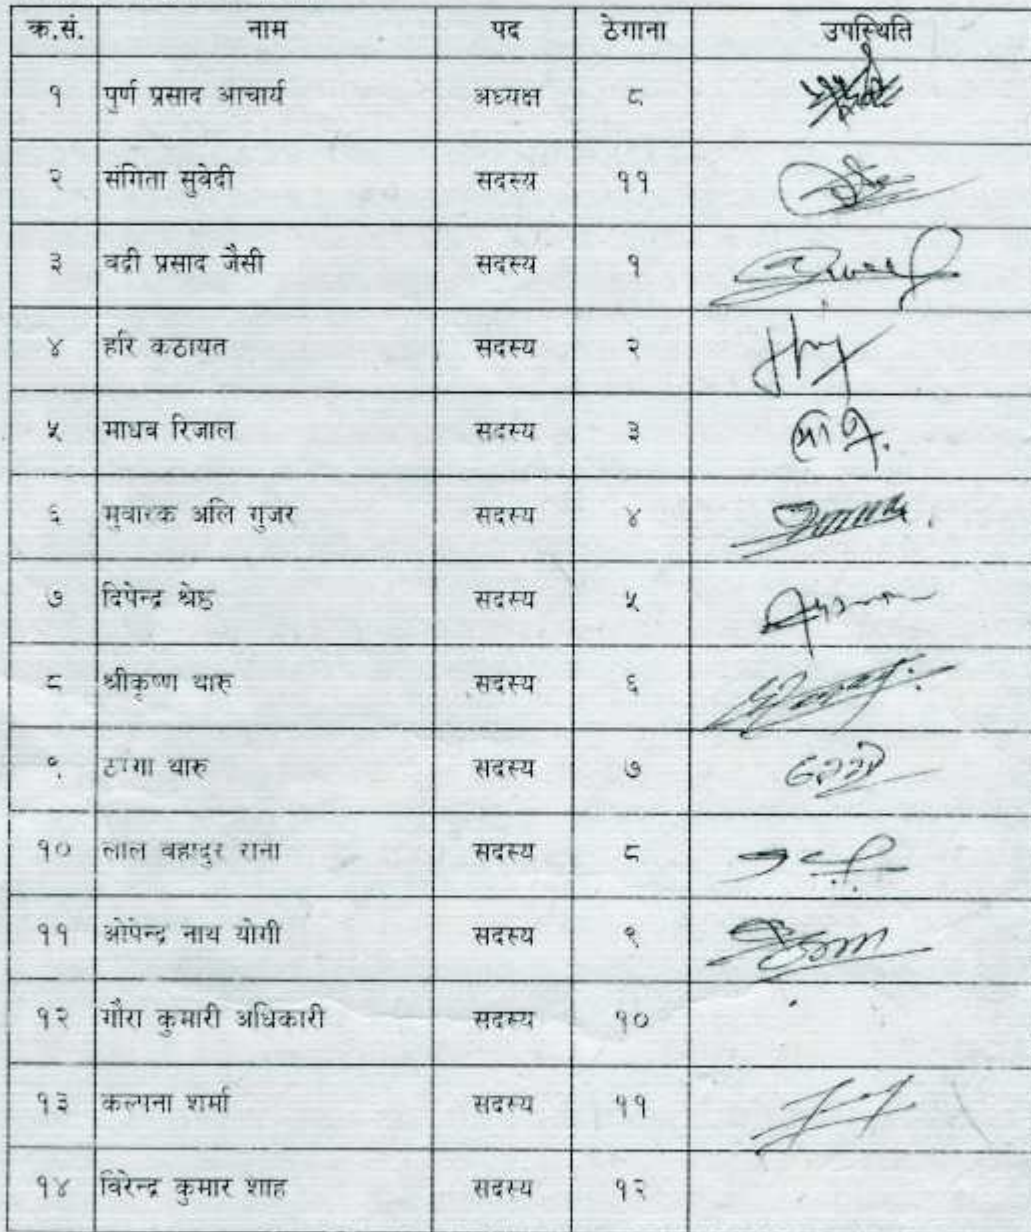 क्र.सं. नाम पद ठेगाना उपस्थिति
१ पुर्ण प्रसाद आचार्य अध्यक्ष ८
२ संगिता सुवेदी सदस्य ११
३ वद्री प्रसाद जैसी सदस्य १
४ हरि कठायत सदस्य २
५ माधव रिजाल सदस्य ३
६ मुवारक अलि गुजर सदस्य ४
७ दिपेन्द्र श्रेष्ठ सदस्य ५
८ श्रीकृष्ण थारु सदस्य ६
९ थारु सदस्य ७
१० लाल वहादुर राना सदस्य ८
११ ओपेन्द्र नाथ योगी सदस्य ९
१२ गौरा कुमारी अधिकारी सदस्य १०
१३ कल्पना शर्मा सदस्य ११
१४ विरेन्द्र कुमार शाह सदस्य १२